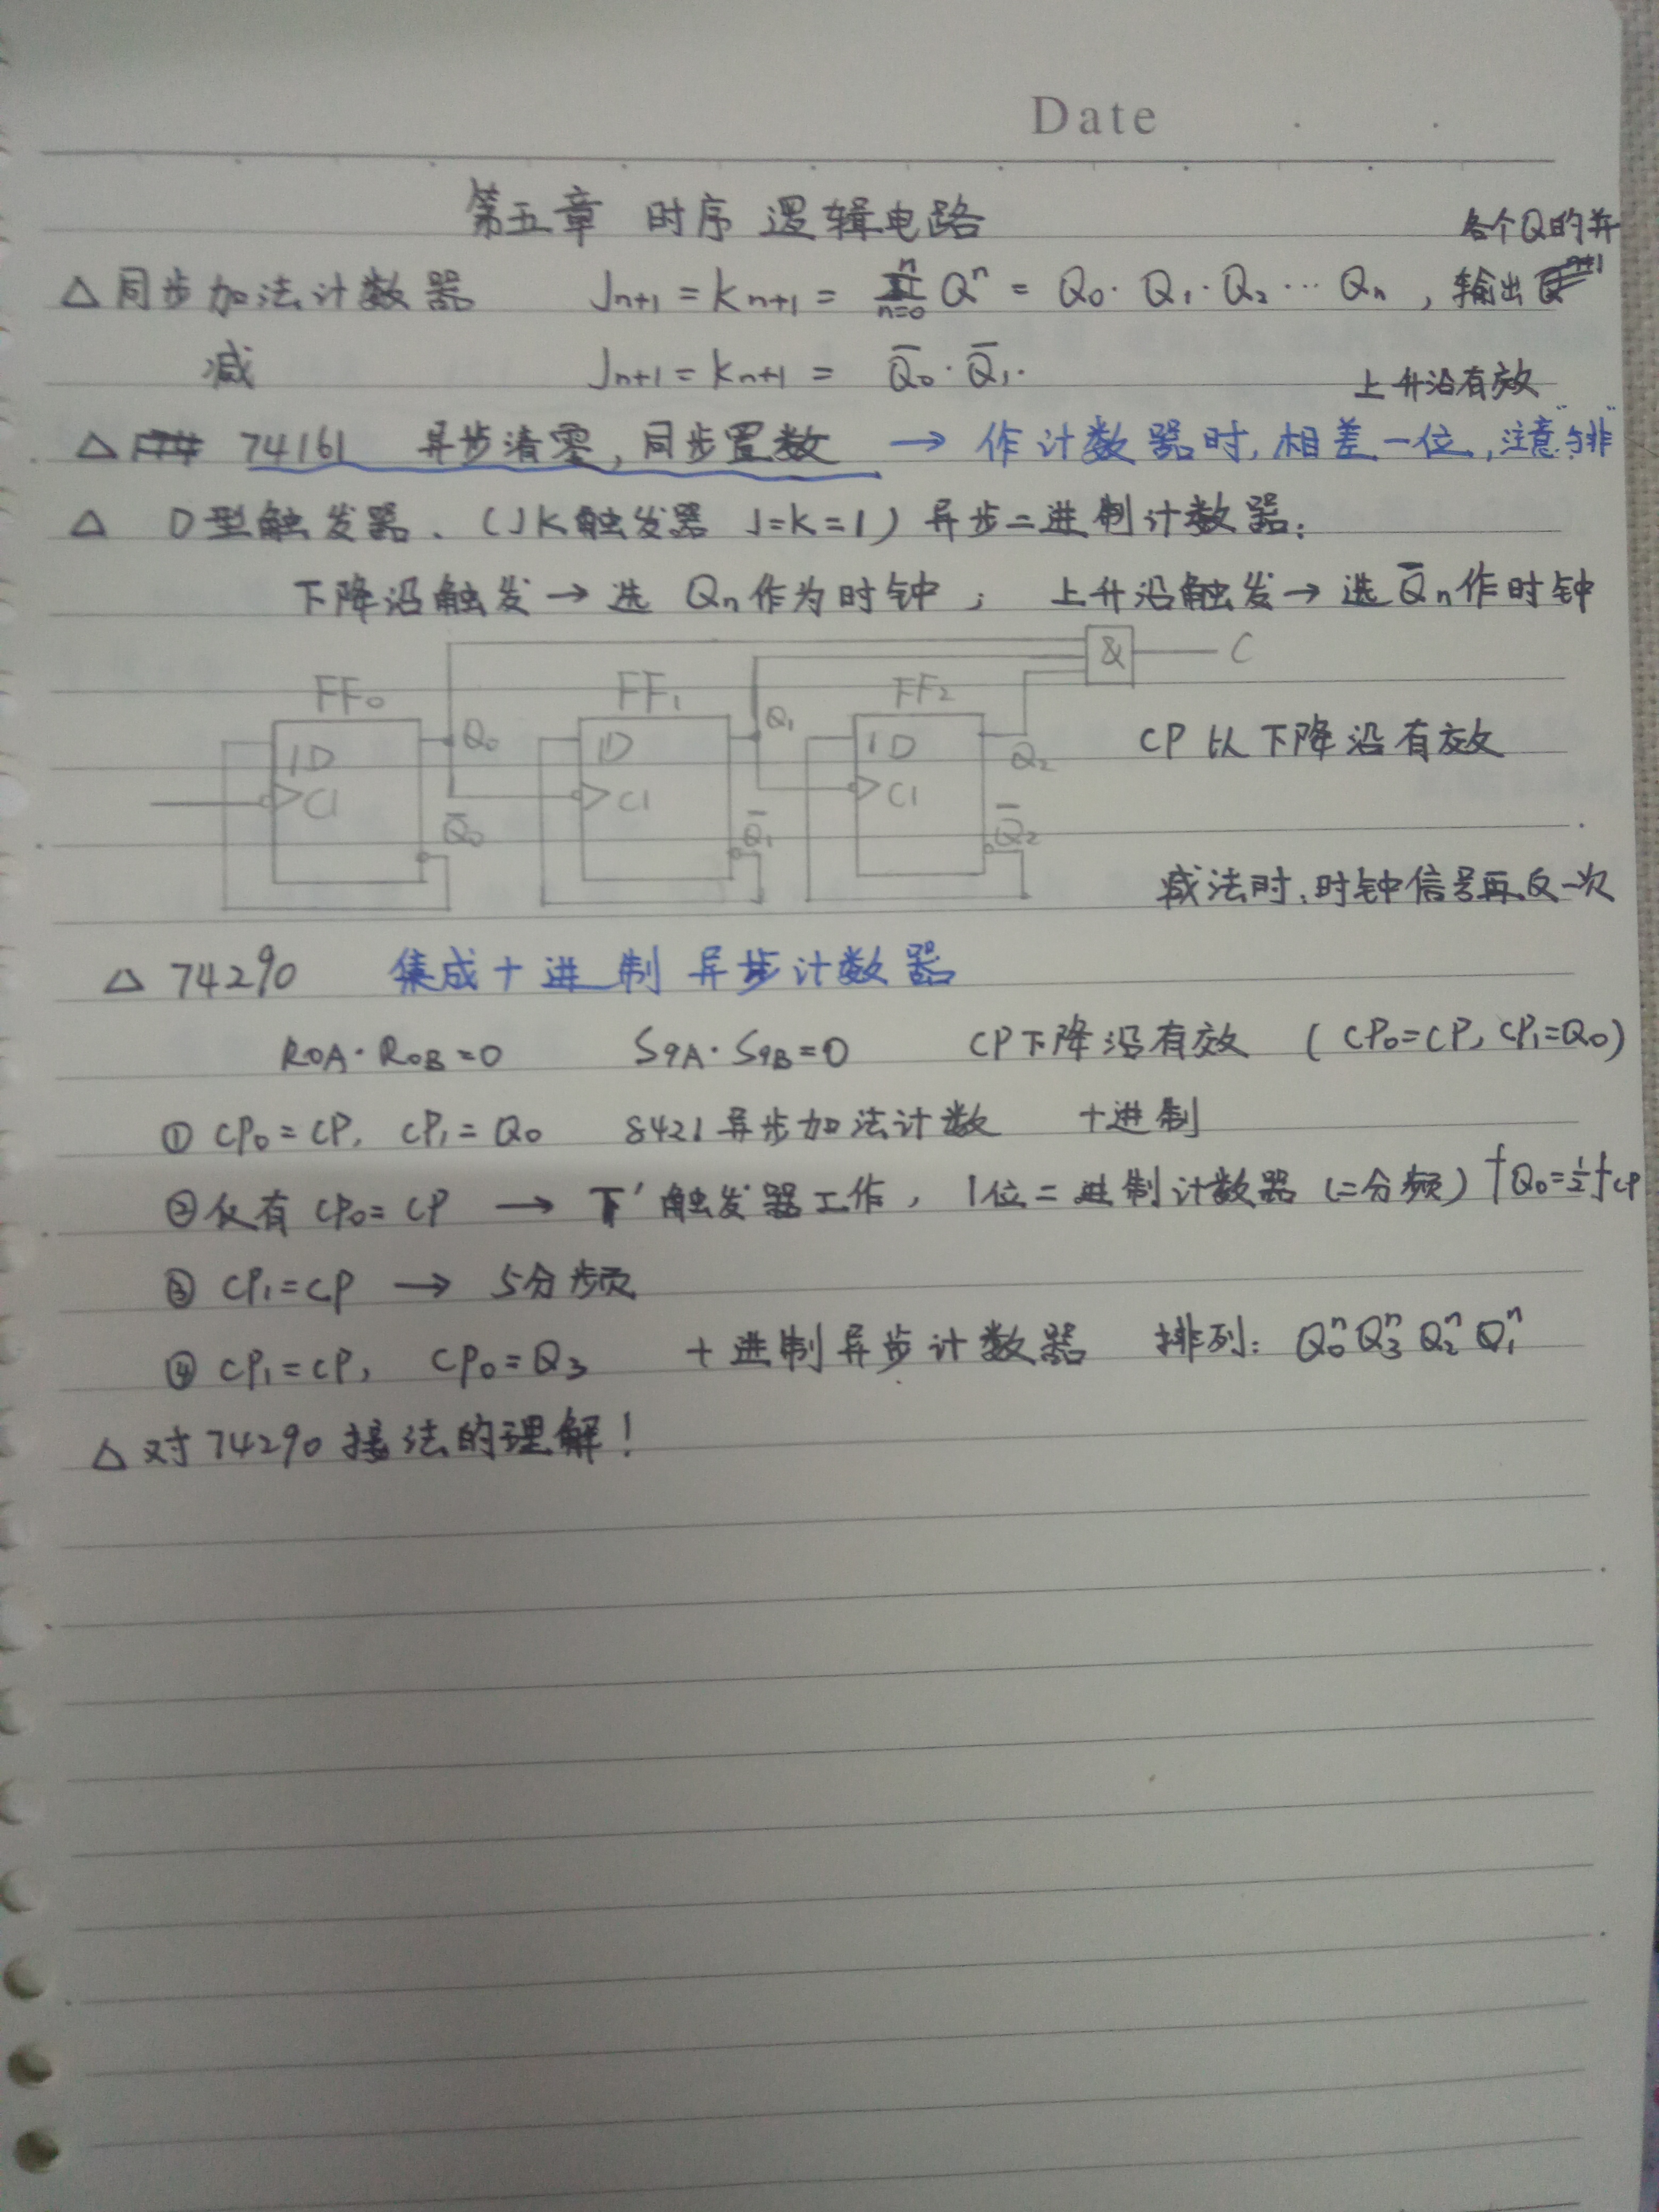 Date
第五章 时序 逻辑电路
各个Q的并
△同步加法计数器 Jn+1 = Kn+1 = n ∏ n=0 Qⁿ = Q₀·Q₁·Q₂…Qn , 输出
减 Jn+1 = Kn+1 = Q̄₀·Q̄₁.
上升沿有效
△ 74161 异步清零, 同步置数 → 作计数器时, 相差一位, 注意"与非"
△ D型触发器、(JK触发器 J=K=1) 异步二进制计数器:
下降沿触发→选 Qn作为时钟 ; 上升沿触发→选Q̄n作时钟
& C
FF₀ FF₁ FF₂
Q₀ Q₁ Q₂
1D 1D 1D
CP以下降沿有效
C1 C1 C1
Q̄₀ Q̄₁ Q̄₂
减法时,时钟信号再反一次
△ 74290 集成十进制异步计数器
R0A·R0B=0 S9A·S9B=0 CP下降沿有效 (CP₀=CP, CP₁=Q₀)
① CP₀=CP, CP₁=Q₀ 8421异步加法计数 十进制
②仅有 CP₀=CP → T'触发器工作, 1位二进制计数器(二分频) fQ₀=½fCP
③ CP₁=CP → 5分频
④ CP₁=CP, CP₀=Q₃ 十进制异步计数器 排列: Q₀ⁿQ₃ⁿQ₂ⁿQ₁ⁿ
△对74290接法的理解!